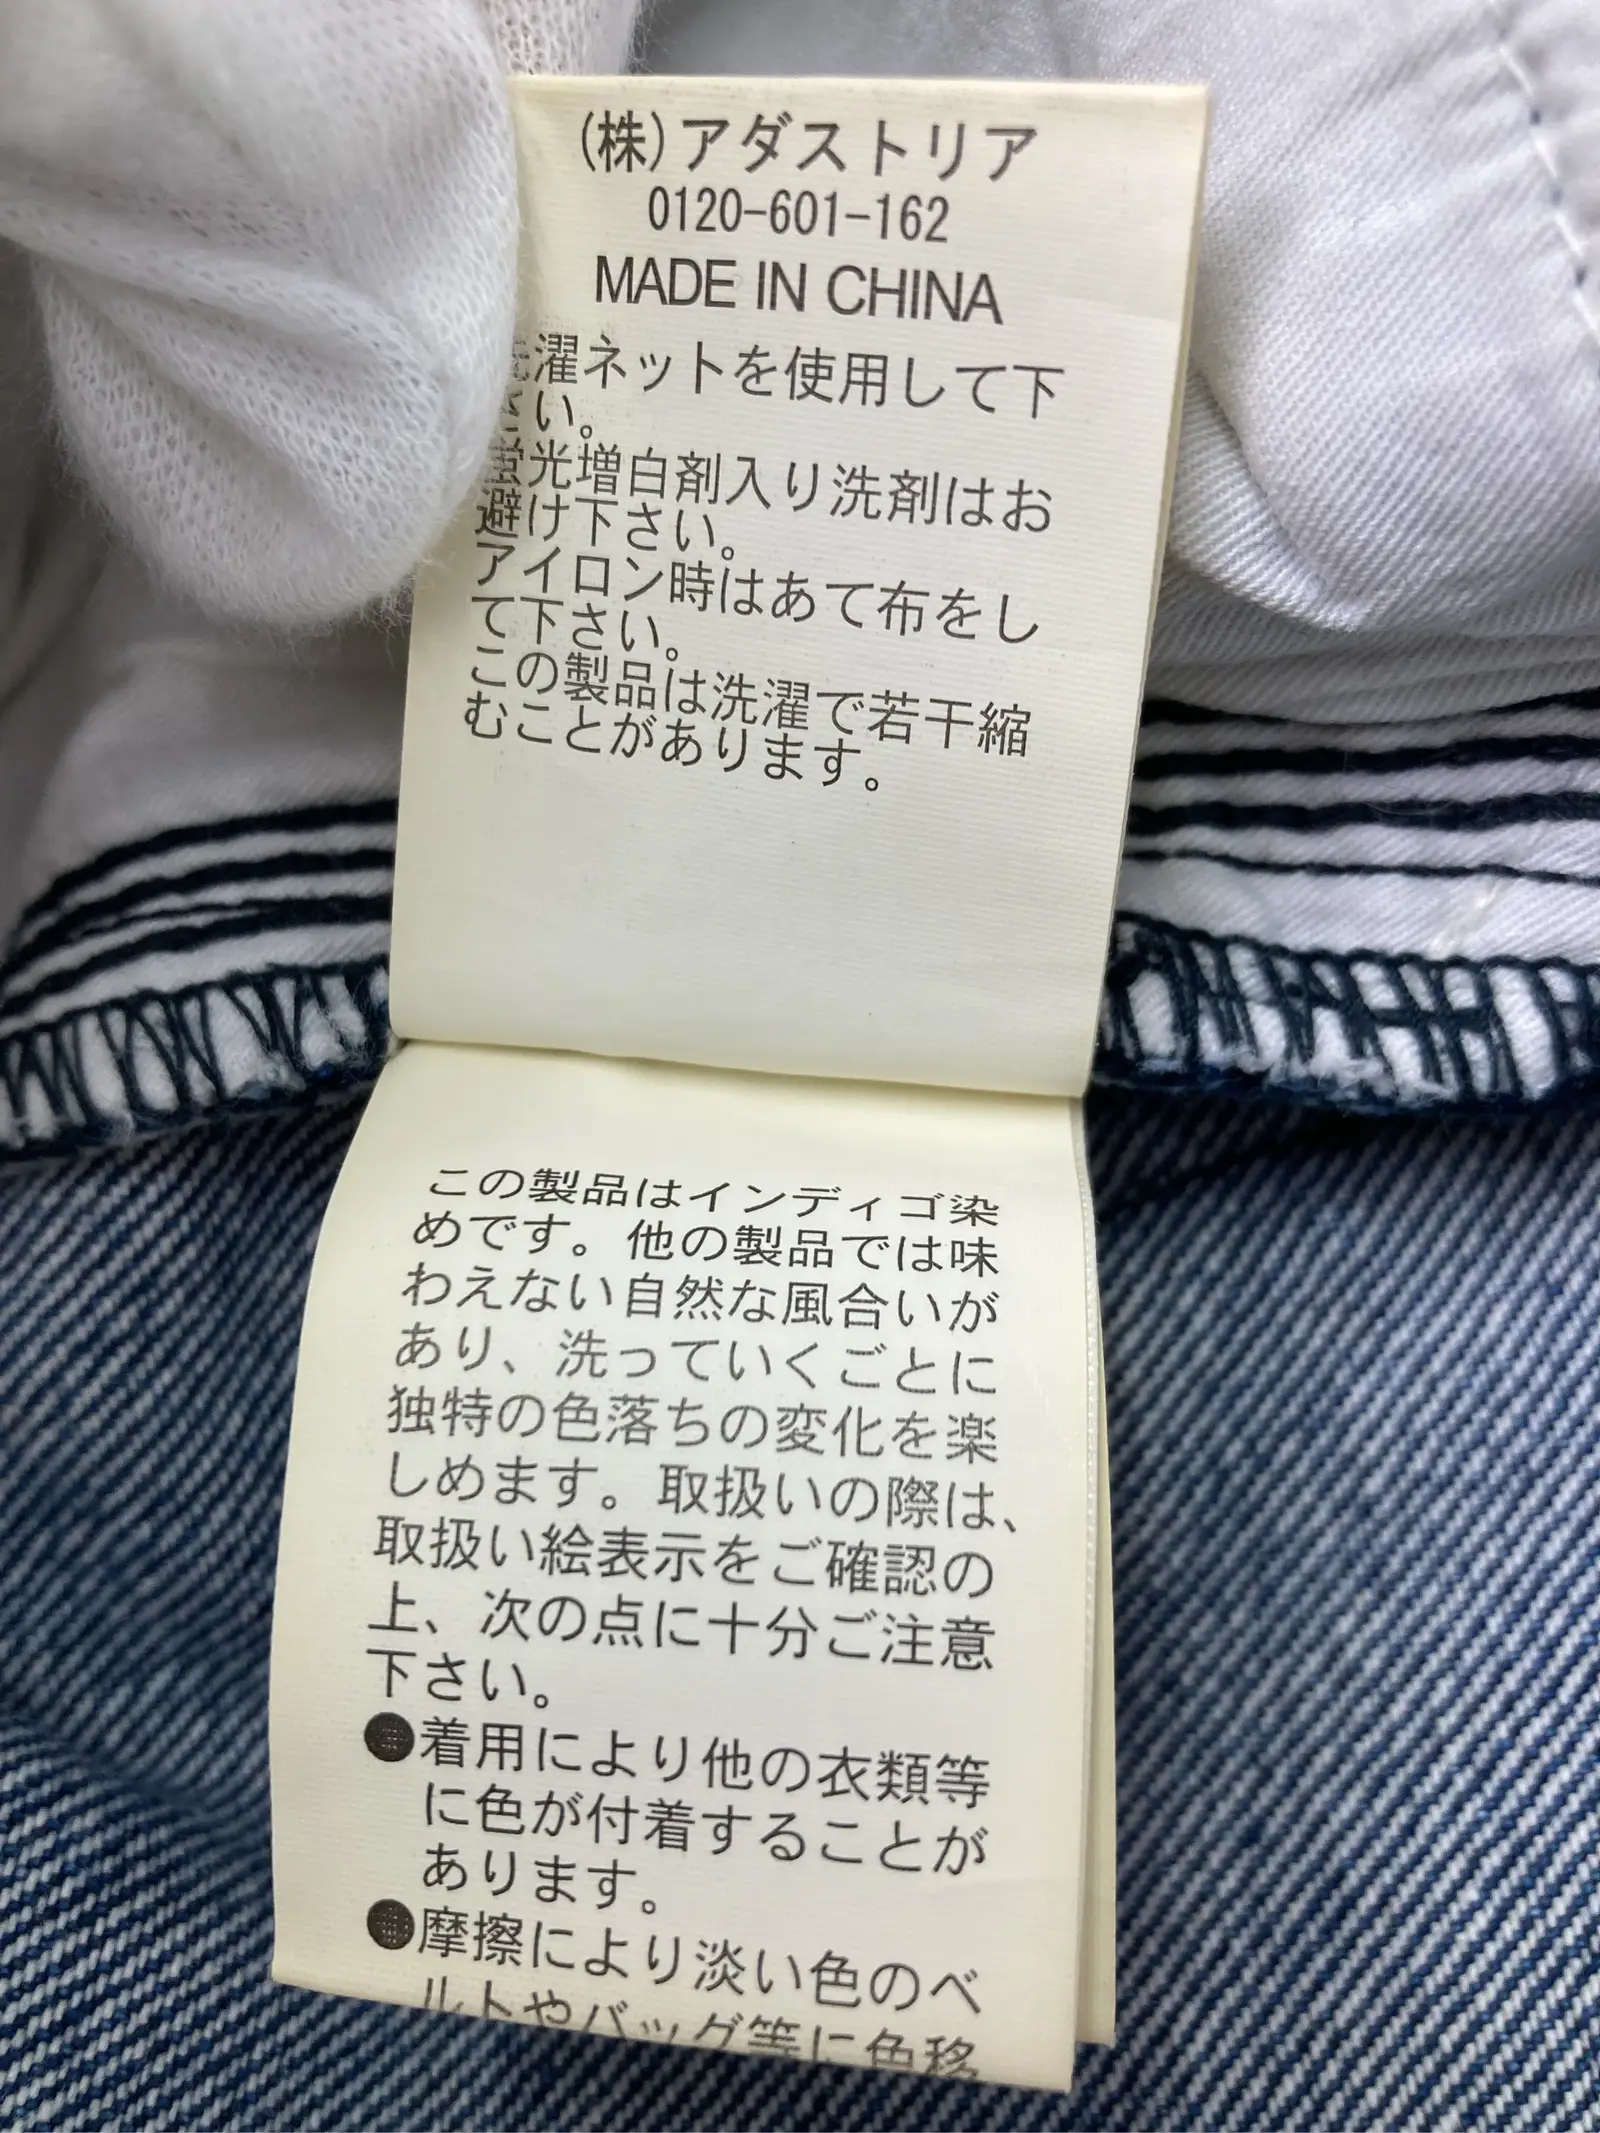 (株)アダストリア
0120-601-162
MADE IN CHINA
洗濯ネットを使用して下
さい。
蛍光増白剤入り洗剤はお
避け下さい。
アイロン時はあて布をし
て下さい。
この製品は洗濯で若干縮
むことがあります。
この製品はインディゴ染
めです。他の製品では味
わえない自然な風合いが
あり、洗っていくごとに
独特の色落ちの変化を楽
しめます。取扱いの際は、
取扱い絵表示をご確認の
上、次の点に十分ご注意
下さい。
●着用により他の衣類等
に色が付着することが
あります。
●摩擦により淡い色のベ
ルトやバッグ等に色移